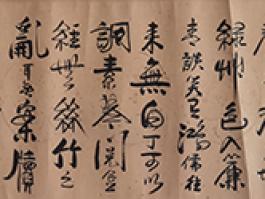 綠草色入簾
青談笑有鴻儒往
來無白丁可以
調素琴閱金
經無絲竹之
亂耳無案牘